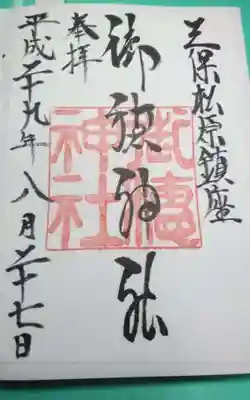 三保松原鎮座
御穂神社
奉拝
平成二十九年八月二十七日
御穂神社